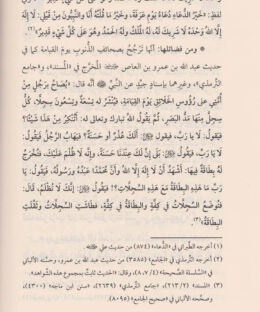 النص: «خَيْرُ الدُّعَاءِ دُعَاءُ يَوْمِ عَرَفَةَ، وَخَيْرُ مَا قُلْتُ أَنَا وَالنَّبِيُّونَ مِنْ قَبْلِي: لَا إِلَهَ
إِلَّا اللهُ وَحْدَهُ لَا شَرِيكَ لَهُ، لَهُ الْمُلْكُ وَلَهُ الْحَمْدُ وَهُوَ عَلَى كُلِّ شَيْءٍ قَدِيرٌ»(٢).
ومن فضائلها: أنها ترجح بصحائف الذُّنوب يوم القيامة كما في
حديث عبد الله بن عمرو بن العاص المُخرَّج في «المسند»، و«جامع
التِّرمذي»، وغيرهما بإسنادٍ جيِّد عن النبيِّ ﷺ أنَّه قال: «يُصَاحُ بِرَجُلٍ مِنْ
أُمَّتِي عَلَى رُؤُوسِ الْخَلَائِقِ يَوْمَ الْقِيَامَةِ، فَيُنْشَرُ لَهُ تِسْعَةٌ وَتِسْعُونَ سِجِلًّا، كُلُّ
سِجِلٍّ مِنْهَا مَدَّ الْبَصَرِ، ثُمَّ يَقُولُ اللهُ تَبَارَكَ وَتَعَالَى لَهُ: أَتُنْكِرُ مِنْ هَذَا شَيْئًا؟
فَيَقُولُ: لَا يَا رَبِّ، فَيَقُولُ ﷻ: أَلَكَ عُذْرٌ أَوْ حَسَنَةٌ؟ فَيَهَابُ الرَّجُلُ فَيَقُولُ:
لَا يَا رَبِّ، فَيَقُولُ ﷻ: بَلَى إِنَّ لَكَ عِنْدَنَا حَسَنَةً، وَإِنَّهُ لَا ظُلْمَ عَلَيْكَ، فَتُخْرَجُ
لَهُ بِطَاقَةٌ فِيهَا أَشْهَدُ أَنْ لَا إِلَهَ إِلَّا اللهُ وَأَنَّ مُحَمَّدًا عَبْدُهُ وَرَسُولُهُ، فَيَقُولُ: يَا
رَبِّ مَا هَذِهِ الْبِطَاقَةُ مَعَ هَذِهِ السِّجِلَّاتِ؟! فَيَقُولُ ﷻ: إِنَّكَ لَا تُظْلَمُ، قَالَ:
فَتُوضَعُ السِّجِلَّاتُ فِي كِفَّةٍ وَالْبِطَاقَةُ فِي كِفَّةٍ، فَطَاشَتِ السِّجِلَّاتُ وَثَقُلَتِ
الْبِطَاقَةُ»(٣).
(١) أخرجه الطَّبراني في «الدُّعاء» (٨٧٤) من حديث علي
(٢) أخرجه التِّرمذي في «جامعه» (٣٥٨٥) من حديث عبد الله بن عمرو، وحسَّنه الألباني
في «السِّلسلة الصَّحيحة» (٨،٧/٤)، وقال: «الحديث ثابتٌ بمجموع هذه الشَّواهد».
(٣) «المسند» (٢١٣/٢)، «جامع التِّرمذي» (٢٦٣٩)، «سنن ابن ماجه» (٤٣٠٠)،
وصحَّحه الألباني في «صحيح الجامع» (٨٠٩٥).